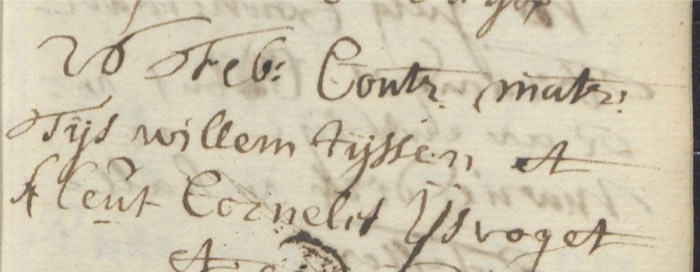 26 Feb: Contr. matr:
Tijs willem tijssen et
Cornelis Ijsvoget
et